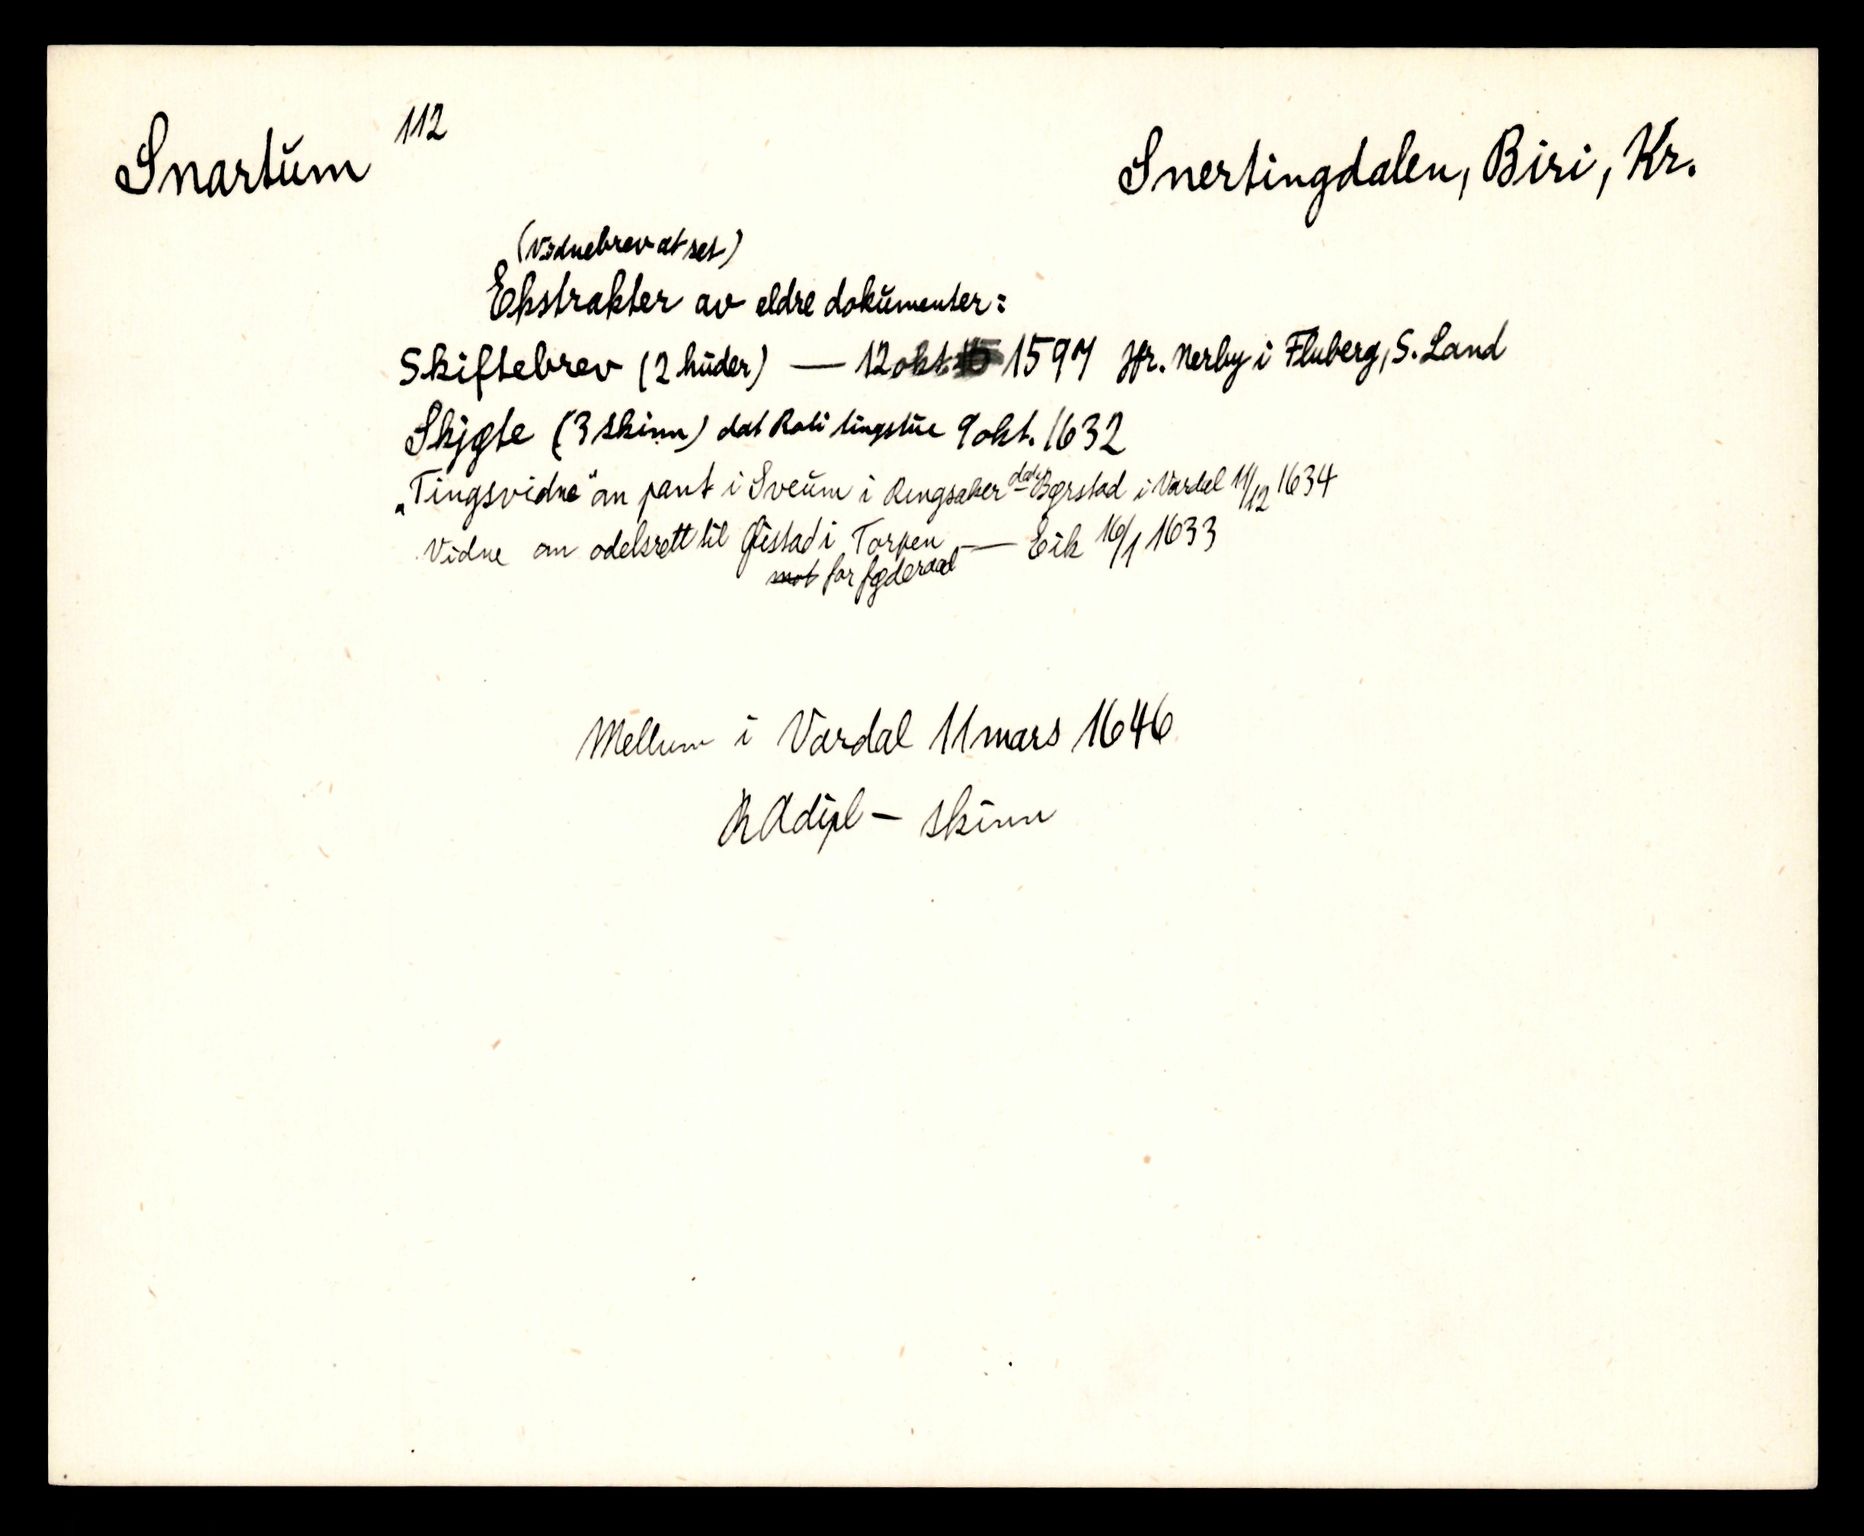 Snartum 112
Snertingdalen, Biri, Kr.
(Vidnebrev at set)
Ekstrakter av eldre dokumenter:
Skiftebrev (2 huder) — 12 okt. 1597 Hfr. Nerby i Fluberg, S. Land
Skjøte (3 skinn) dat tingstue 9 okt. 1632
„Tingsvidne" om pant i Sveum i Ringsaker dat. Børstad i Vardal 11/12 1634
Vidne om odelsrett til i Torpen — Eik 16/1 1633
mot for føderaad
Mellum i Vardal 11 mars 1646
RA dipl — skinn